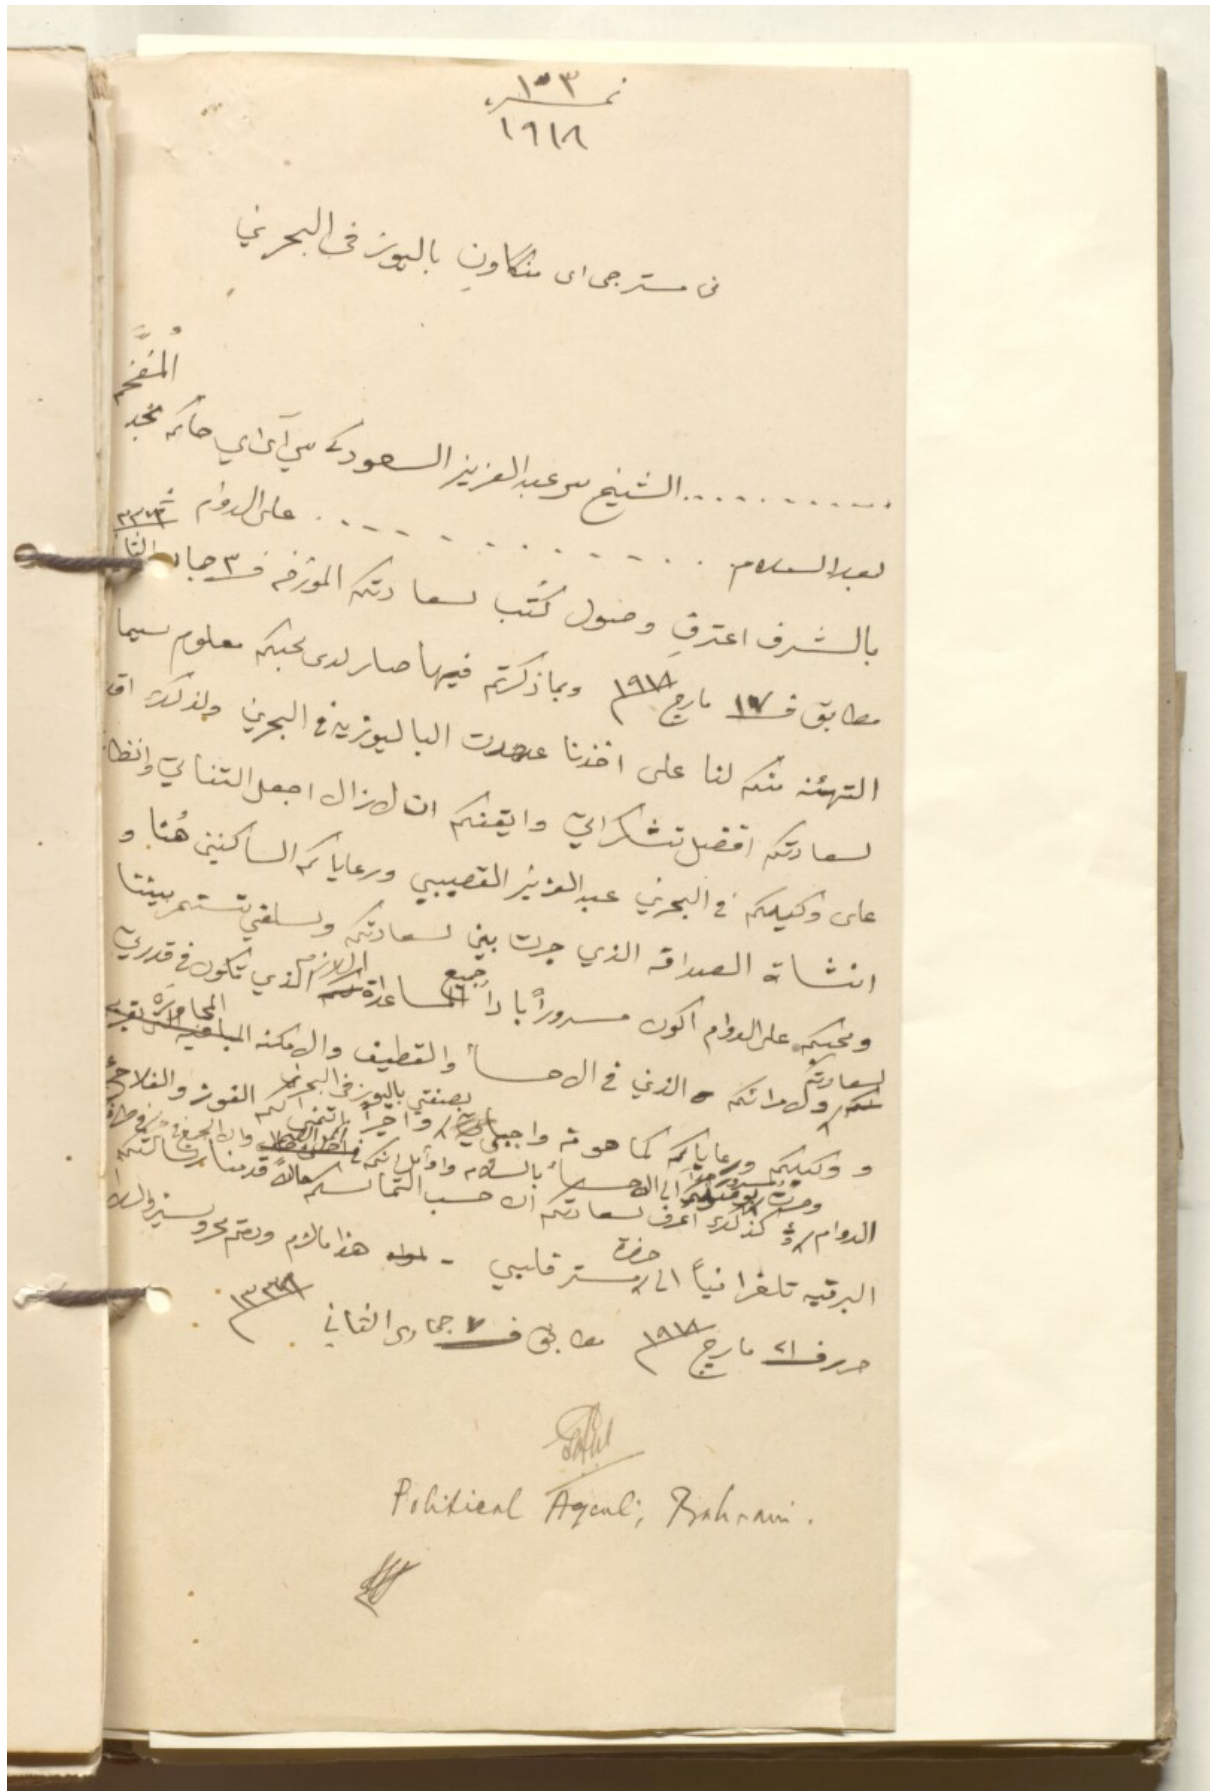 نمبر ١٠٣
١٩١٨
من مستر جی ای منكاوين باليوز فی البحرين
المُفَخَّم
الشيخ سر عبد العزيز السعود کے سي آی ای حاكم نجد
بعد السلام على الدوام
بالشرف اعترف وصول كُتب سعادتكم المؤرخه ف ٣ جماد الثا
مطابق ف ١٧ مارچ ١٩١٨ وبماذكرتم فيها صار لدى محبكم معلوم سيما
التهنئه منكم لنا على اخذنا عهدت الباليوزيه فی البحرين ولذلك اقد
لسعادتكم افضل تشكراتي وايقنكم ان لازال اجعل التفاتي وانظا
على وكيلكم في البحرين عبد العزيز القصيبي ورعاياكم الساكنين هُنا و
انشاة الصداقه الذي جرت بين سعادتكم وسلفي تستمر بيننا
ومحبكم على الدوام اكون مسروراً باداء جميع المساعداة اللازم الذي تكون في قدرتي
لسعادتكم ولامرائكم الذين فی الاحسا والقطيف والامكنه المجاوره
و وكيلكم ورعاياكم كما هو من واجباتي بصفتي باليوز فی البحرين واخيراً اتمنى لكم الفوز والفلاح
الى الاحسا بالسلامه واؤمل انكم في
الدوام كذلك اعرف سعادتكم ان حسب التماسكم حالاً قدمنا رسالتكم
البرقيه تلغرافياً الى حضرة مستر فلبي - هذا مالزم ودمتم محروسين والسلا
حرر ف ٢١ مارچ ١٩١٨ مطابق ف ٧ جمادى الثاني ١٣٣٦
Political Agent, Bahrain.